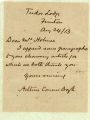 Tudor Lodge
Frinton
Aug 24/13
Dear Mr Holmes
I append some paragraphs
of your charming article for
which we both thank you
Yours sincerely
Arthur Conan Doyle